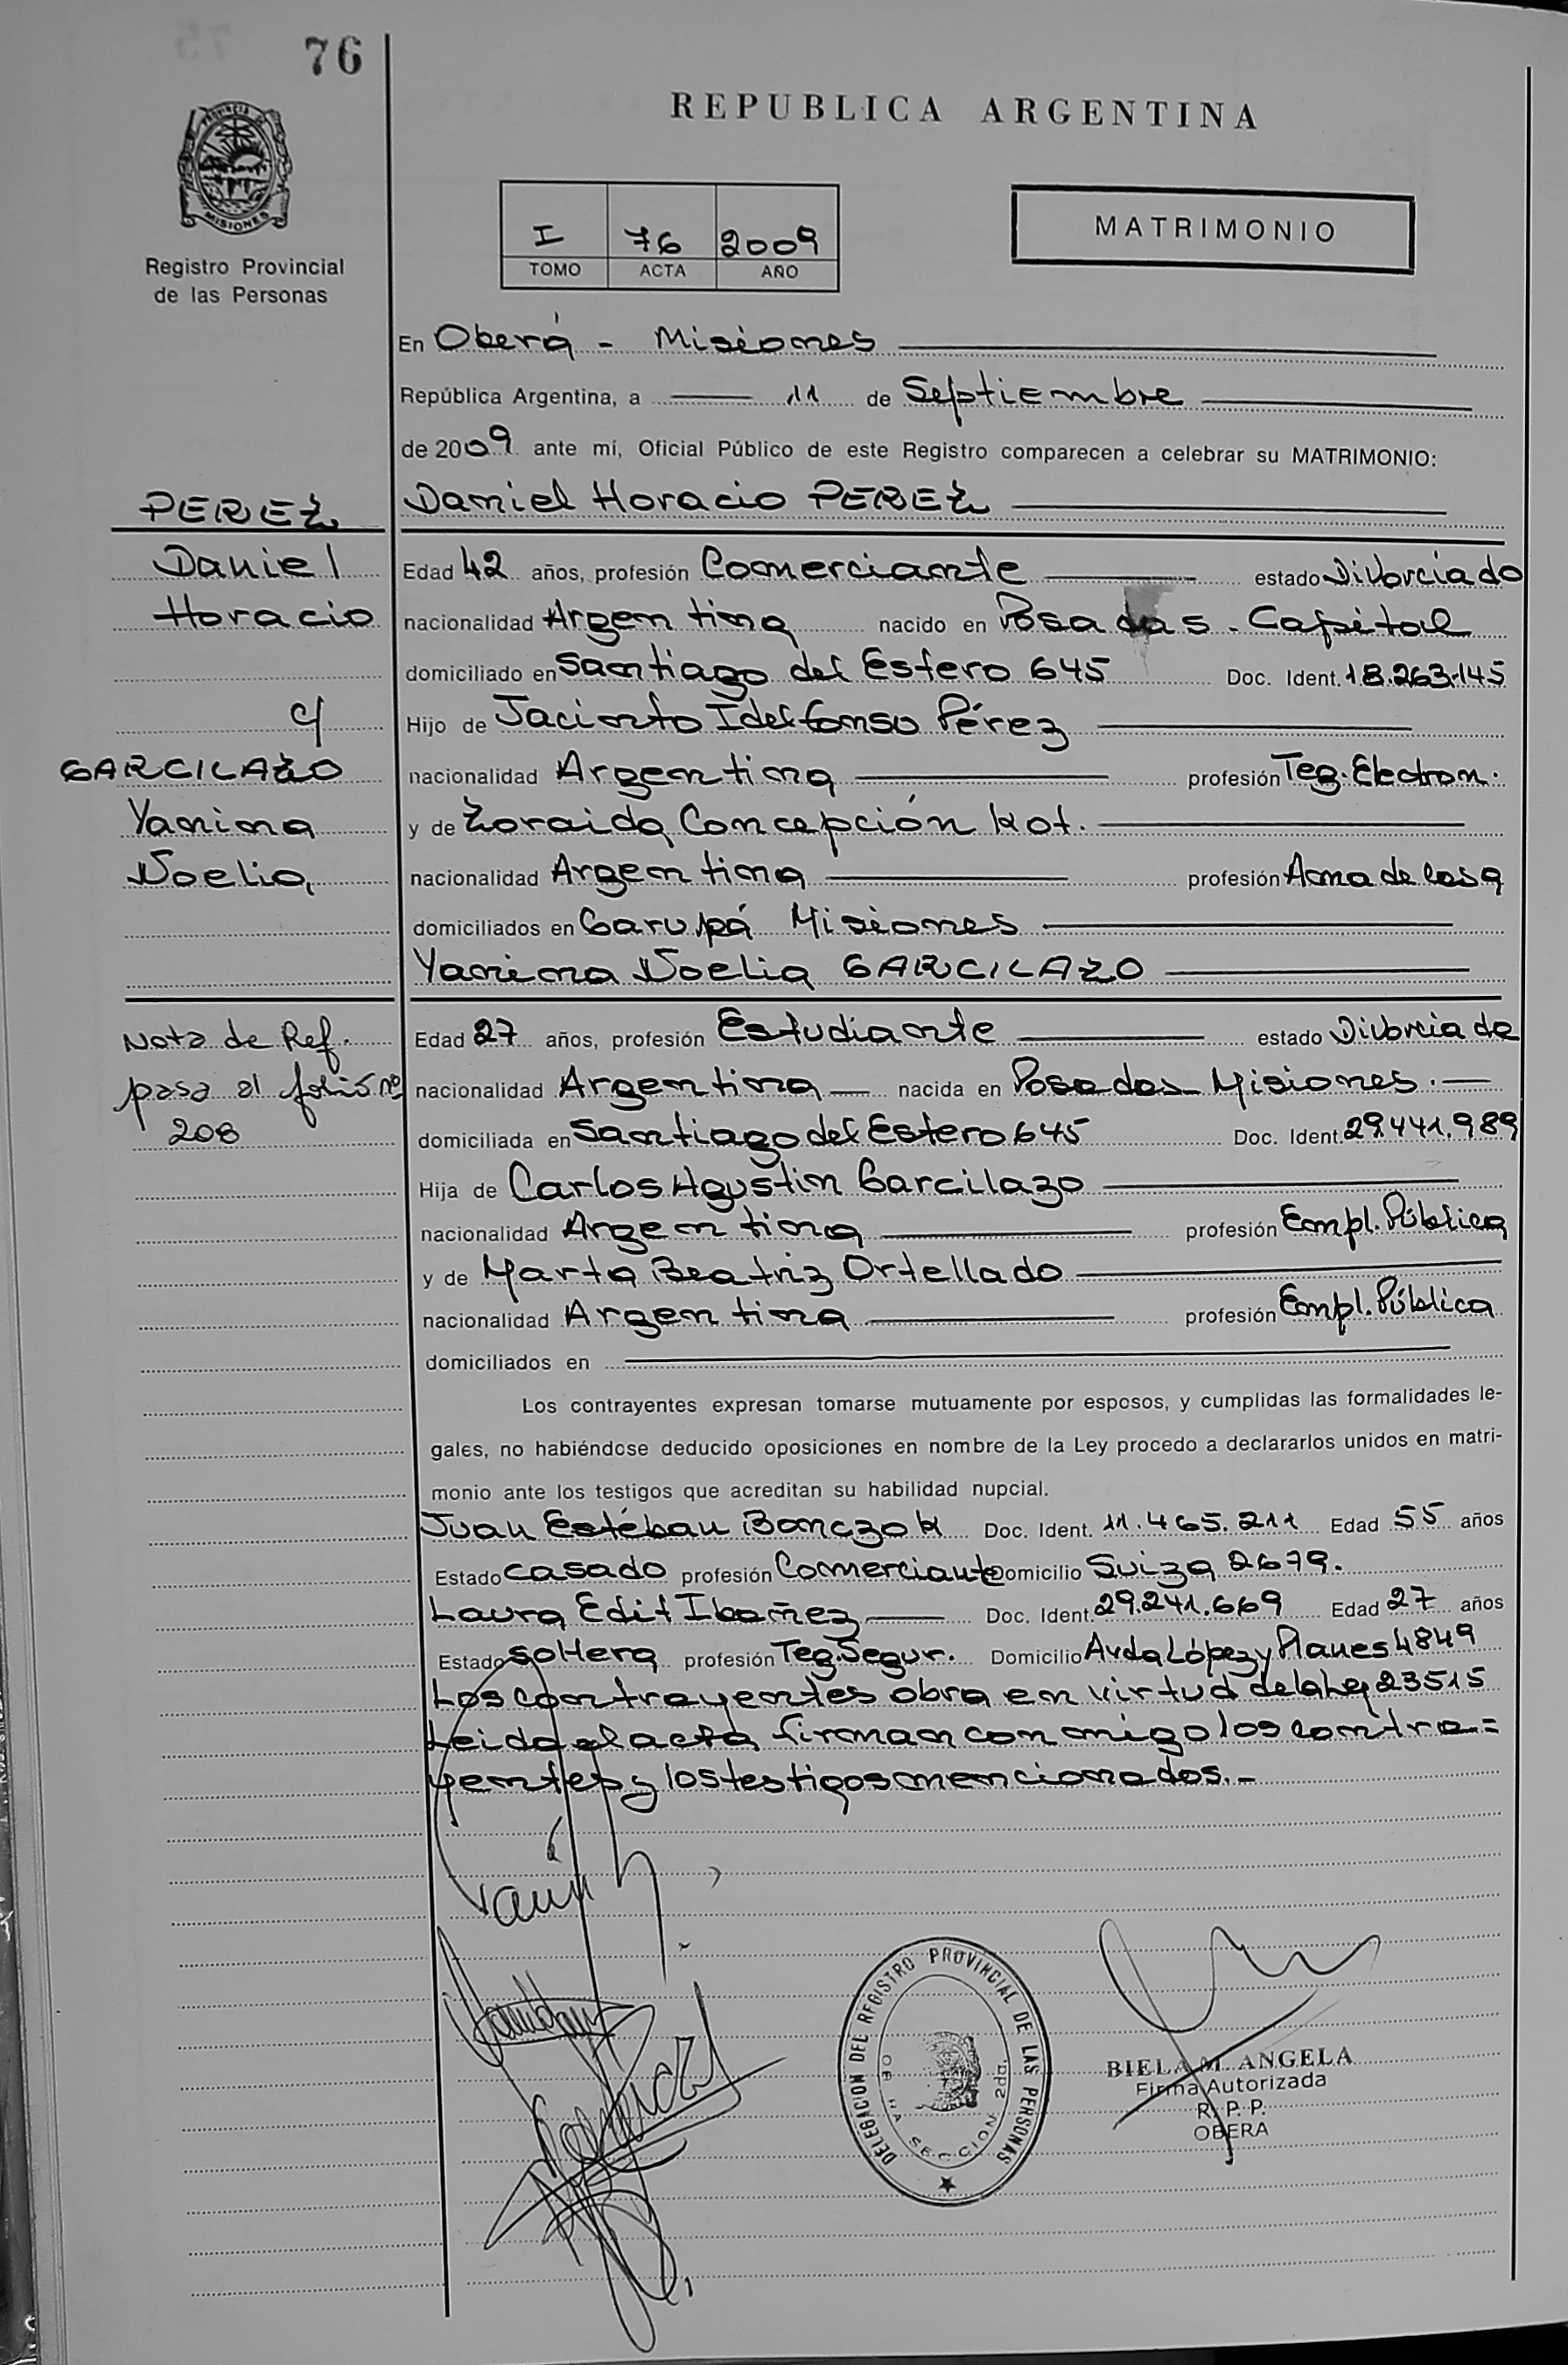 76
REPUBLICA ARGENTINA
PROVINCIA DE
MISIONES
Registro Provincial
de las Personas
I 76 2009
TOMO ACTA AÑO
MATRIMONIO
En Oberá - Misiones
República Argentina, a 11 de Septiembre
de 2009 ante mí, Oficial Público de este Registro comparecen a celebrar su MATRIMONIO:
PEREZ
Daniel
Horacio
c/
GARCILAZO
Yanina
Noelia
Nota de Ref.
pasa al folio nº
208
Daniel Horacio PEREZ
Edad 42 años, profesión Comerciante estado Divorciado
nacionalidad Argentina nacido en Posadas - Capital
domiciliado en Santiago del Estero 645 Doc. Ident. 18.263.145
Hijo de Jacinto Idelfonso Pérez
nacionalidad Argentina profesión Teg. Electron.
y de Zoraida Concepción Kot.
nacionalidad Argentina profesión Ama de Casa
domiciliados en Garupá Misiones
Yanina Noelia GARCILAZO
Edad 27 años, profesión Estudiante estado Divorciada
nacionalidad Argentina nacida en Posadas Misiones.
domiciliada en Santiago del Estero 645 Doc. Ident. 29.441.989
Hija de Carlos Agustin Garcilazo
nacionalidad Argentina profesión Empl. Pública
y de Marta Beatriz Ortellado
nacionalidad Argentina profesión Empl. Pública
domiciliados en
Los contrayentes expresan tomarse mutuamente por esposos, y cumplidas las formalidades le-
gales, no habiéndose deducido oposiciones en nombre de la Ley procedo a declararlos unidos en matri-
monio ante los testigos que acreditan su habilidad nupcial.
Juan Estéban Bonczok Doc. Ident. 11.465.211 Edad 55 años
Estado casado profesión Comerciante Domicilio Suiza 2679.
Laura Edit Ibañez Doc. Ident. 29.241.669 Edad 27 años
Estado soltera profesión Teg. Segur. Domicilio Avda López y Planes 4849
Los contrayentes obra en virtud de la Ley 23515
Leida el acta, firman con migo los contra=
yentes y los testigos mencionados.-
DELEGACION DEL REGISTRO PROVINCIAL DE LAS PERSONAS
OBERA SECCION 2da.
BIELA M. ANGELA
Firma Autorizada
R. P. P.
OBERA